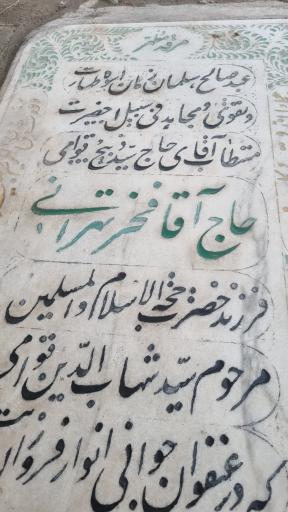 مرقد مطهر
عبد صالح سلمان زمان ابوذر
و تقوی و مجاهد فی سبیل الله حضرت
مستطاب آقای حاج سید ذبیح قوامی
حاج آقا فخر تهرانی
فرزند حضرت حجة الاسلام والمسلمین
مرحوم سید شهاب الدین قوامی
که در عنفوان جوانی انوار فروزان